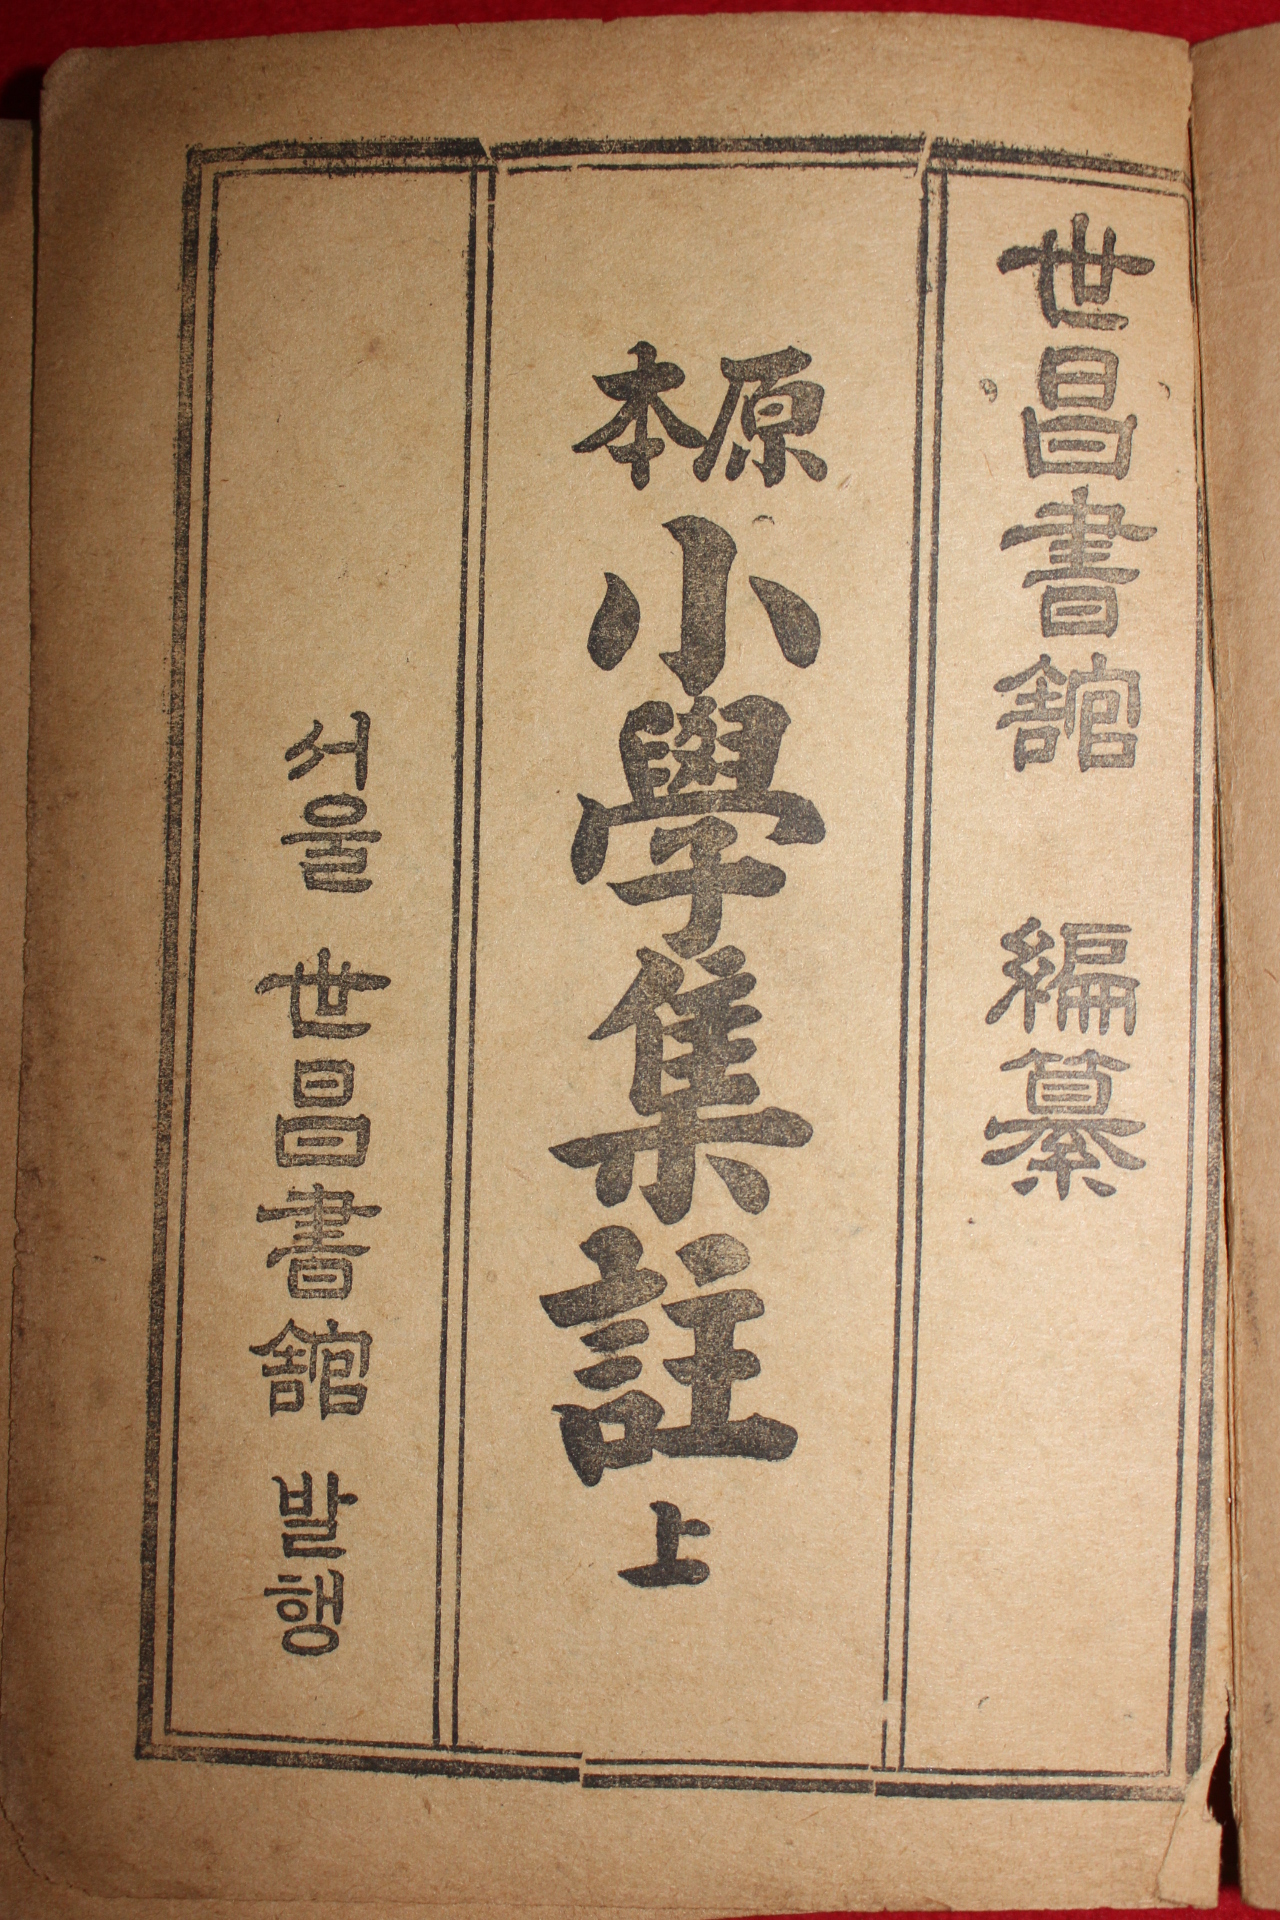 世昌書舘 編纂
原本
小學集註 上
서울 世昌書舘 발행